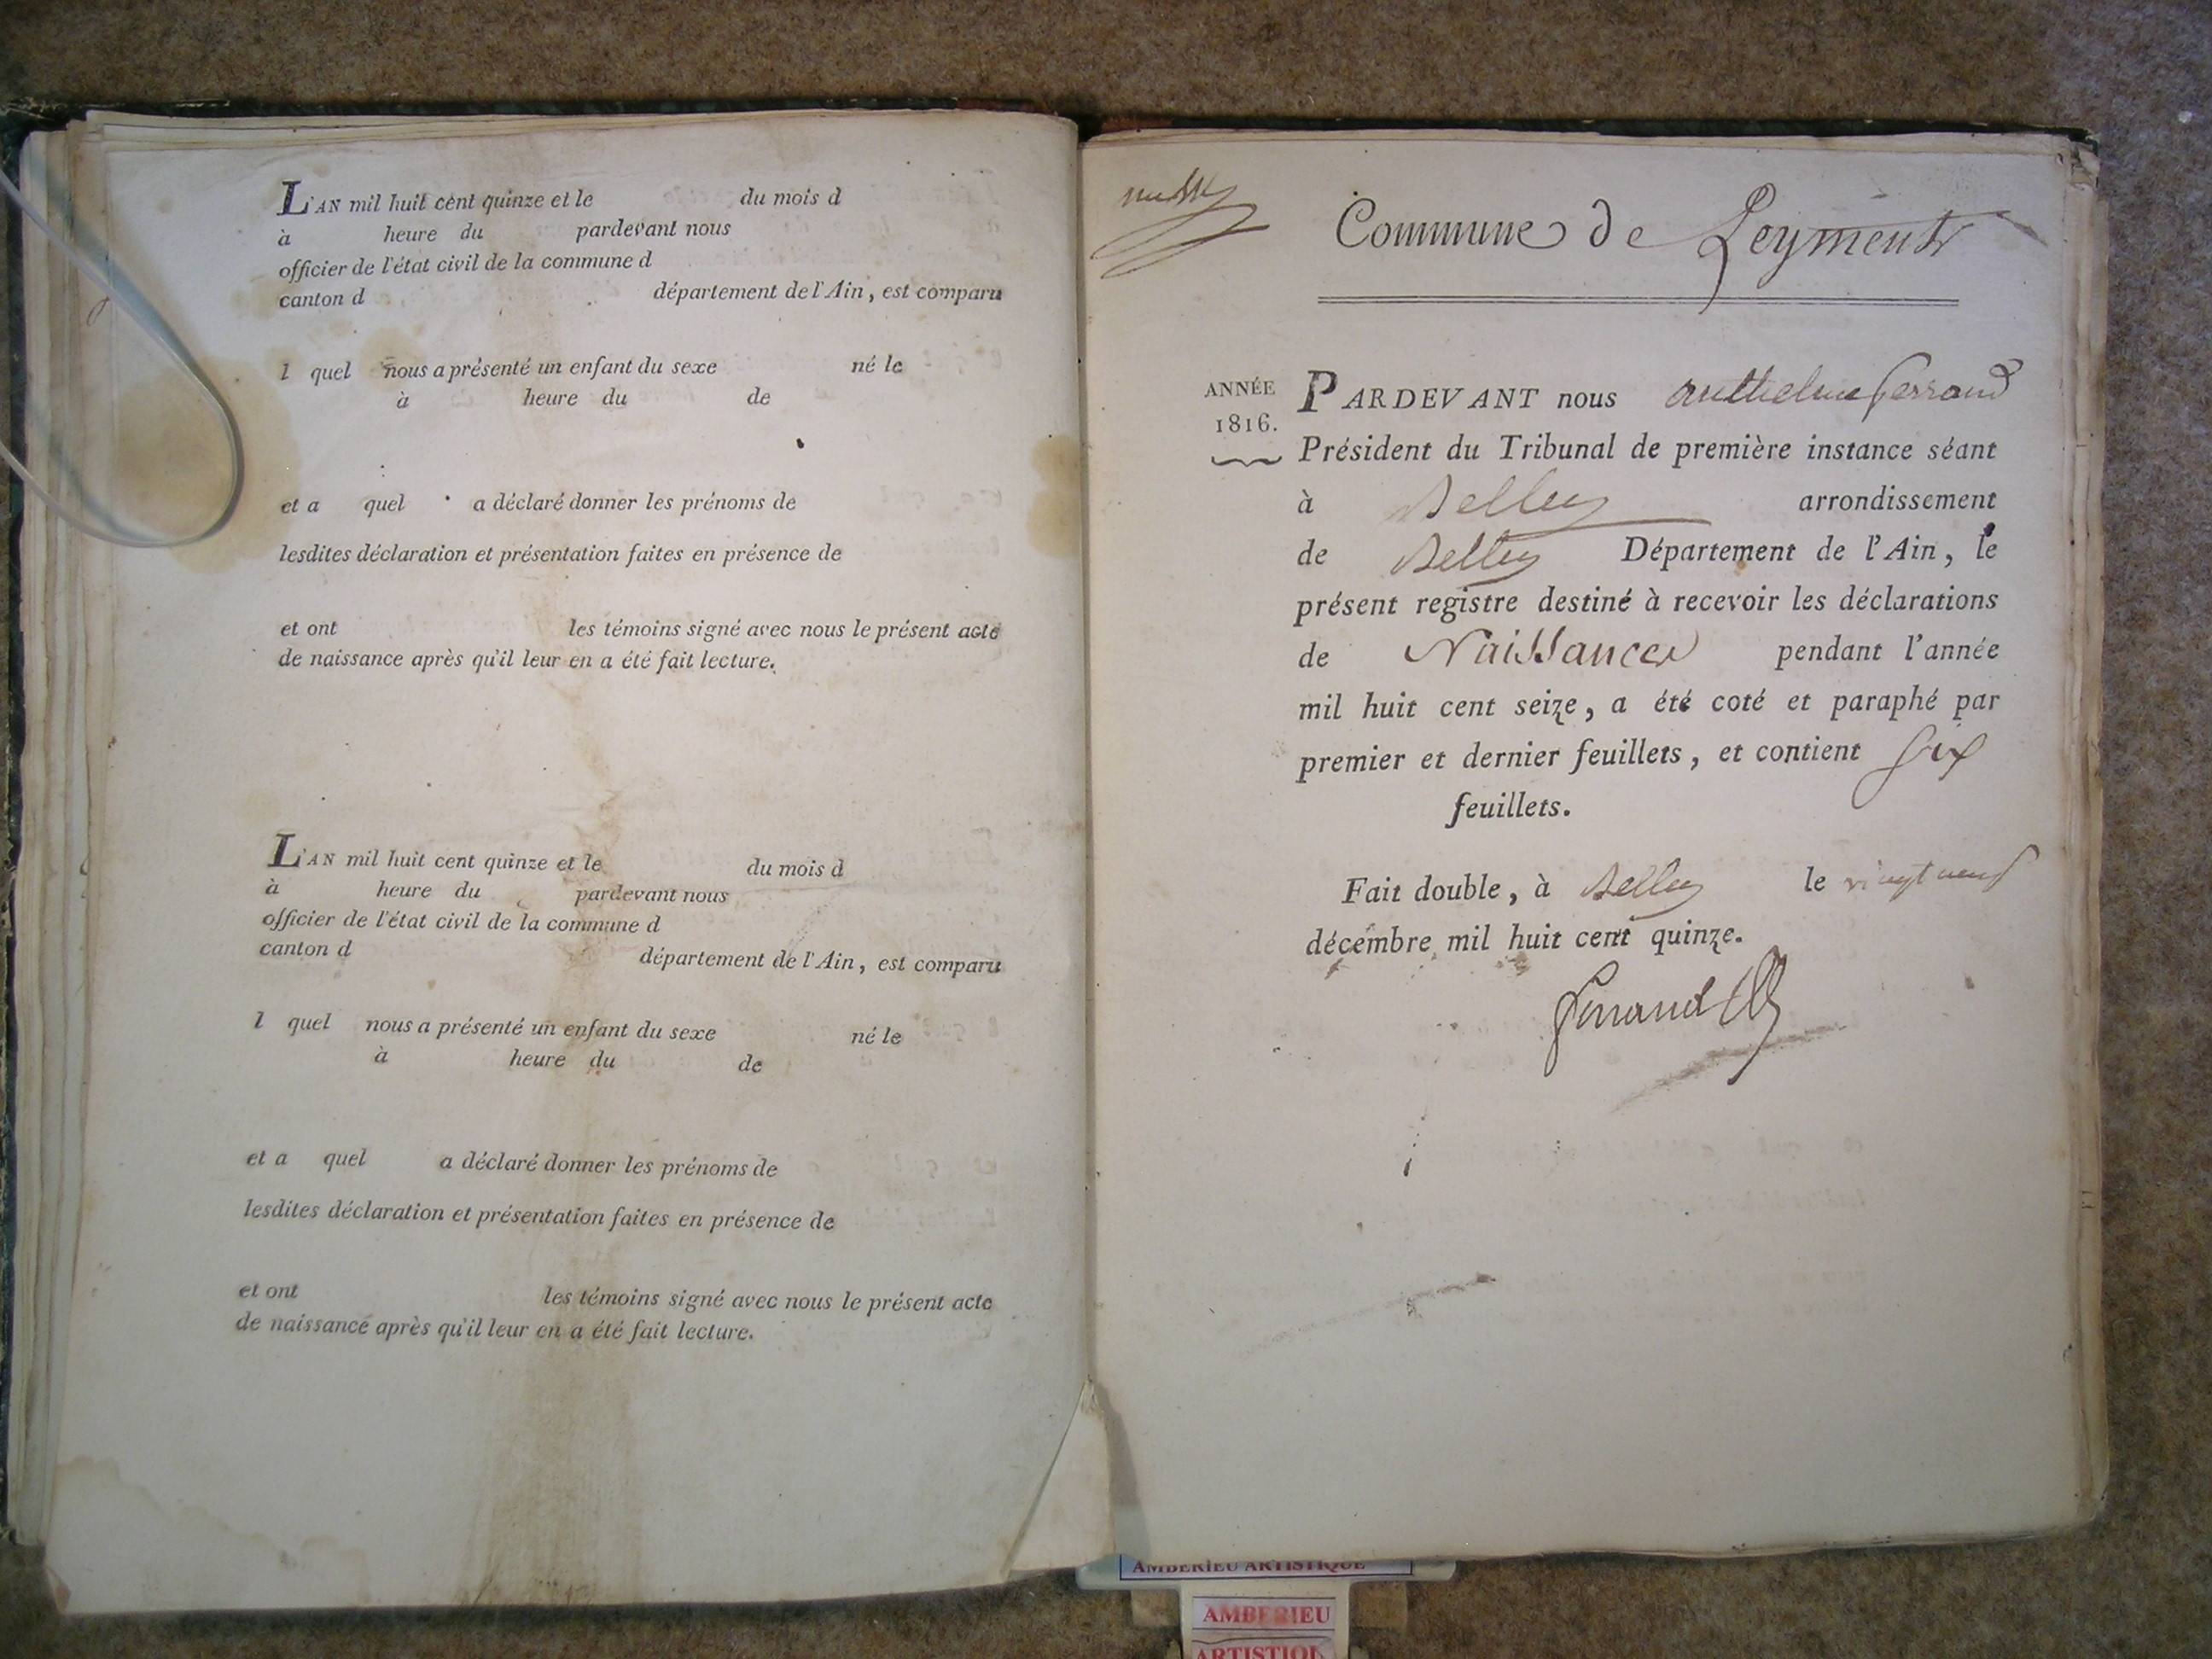 L'AN mil huit cent quinze et le du mois d
à heure du pardevant nous
officier de l'état civil de la commune d
canton d département de l'Ain, est comparu
l quel nous a présenté un enfant du sexe né le
à heure du de
et a quel a déclaré donner les prénoms de
lesdites déclaration et présentation faites en présence de
et ont les témoins signé avec nous le présent acte
de naissance après qu'il leur en a été fait lecture.
L'AN mil huit cent quinze et le du mois d
à heure du pardevant nous
officier de l'état civil de la commune d
canton d département de l'Ain, est comparu
l quel nous a présenté un enfant du sexe né le
à heure du de
et a quel a déclaré donner les prénoms de
lesdites déclaration et présentation faites en présence de
et ont les témoins signé avec nous le présent acte
de naissance après qu'il leur en a été fait lecture.
Commune de Leyment
ANNÉE
1816.
PARDEVANT nous anthelme ferrand
Président du Tribunal de première instance séant
à Belley arrondissement
de Belley Département de l'Ain, le
présent registre destiné à recevoir les déclarations
de Naissances pendant l'année
mil huit cent seize, a été coté et paraphé par
premier et dernier feuillets, et contient six
feuillets.
Fait double, à Belley le vingt neuf
décembre mil huit cent quinze.
ferrand
AMBERIEU ARTISTIQUE
AMBERIEU